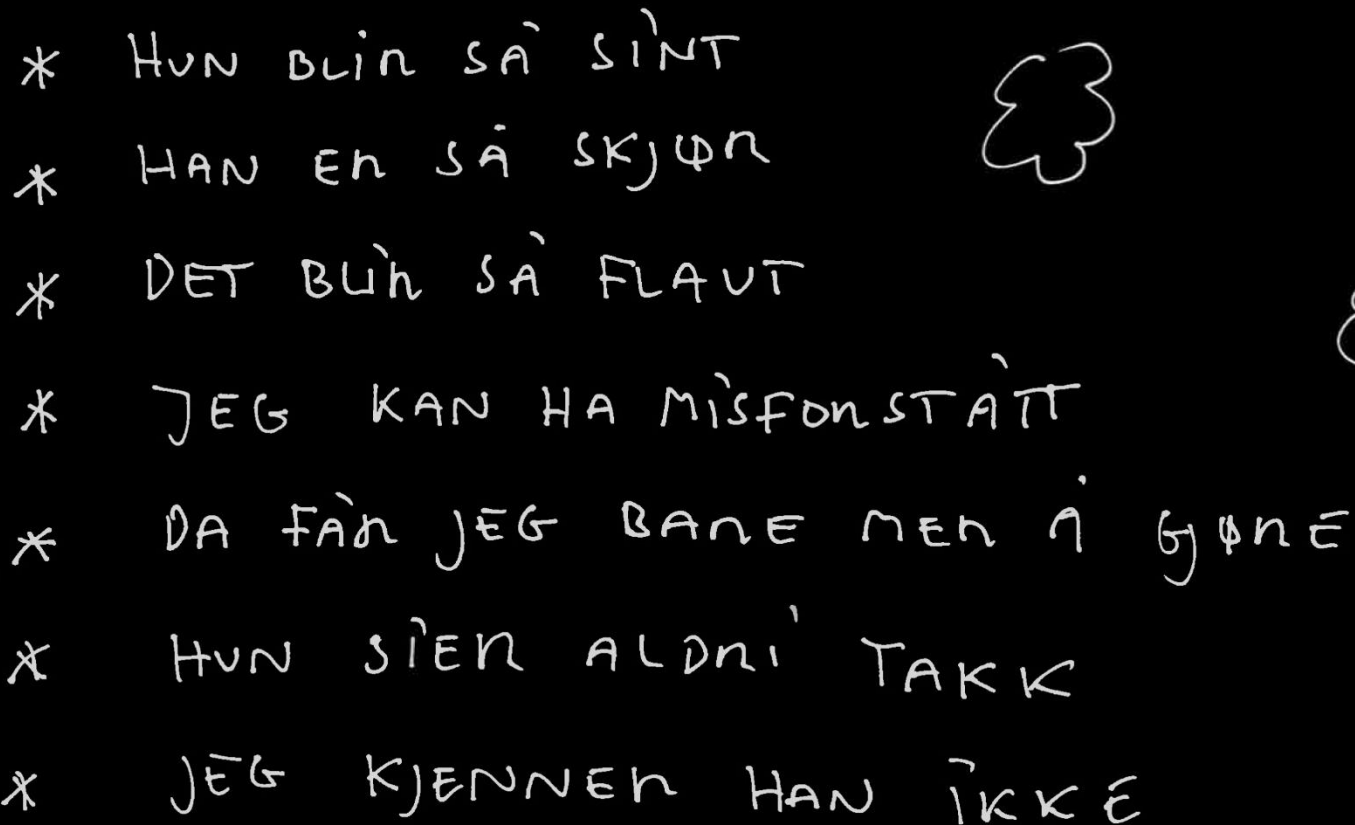 * HUN BLIR SÅ SINT
* HAN ER SÅ SKJØR
* DET BLIR SÅ FLAUT
* JEG KAN HA MISFORSTÅTT
* DA FÅR JEG BARE MER Å GJØRE
* HUN SIER ALDRI TAKK
* JEG KJENNER HAN IKKE